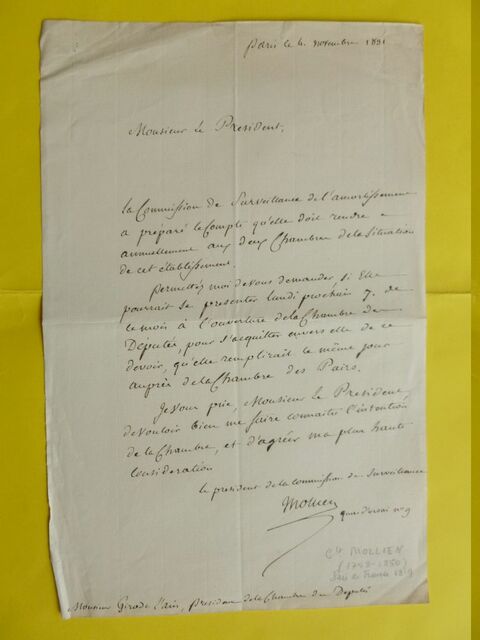 Paris le 4. novembre 1831
Monsieur le Président,
la Commission de Surveillance de l'amortissement
a préparé le Compte qu'elle doit rendre
annuellement aux deux Chambres de la Situation
de cet établissement.
Permettez moi de vous demander si Elle
pourrait se présenter lundi prochain 7. de
ce mois à l'ouverture de la Chambre des
Députés, pour s'acquitter envers elle de ce
devoir, qu'elle remplirait le même jour
auprès de la Chambre des Pairs.
Je vous prie, Monsieur le Président,
de vouloir bien me faire connaître l'intention
de la Chambre, et d'agréer ma plus haute
Considération
le président de la commission de Surveillance
Mollien
quai d'orsai n° 9
Cte MOLLIEN
(1758-1850)
Pair de France 1819
Monsieur Girod de l'ain, président de la Chambre des Députés